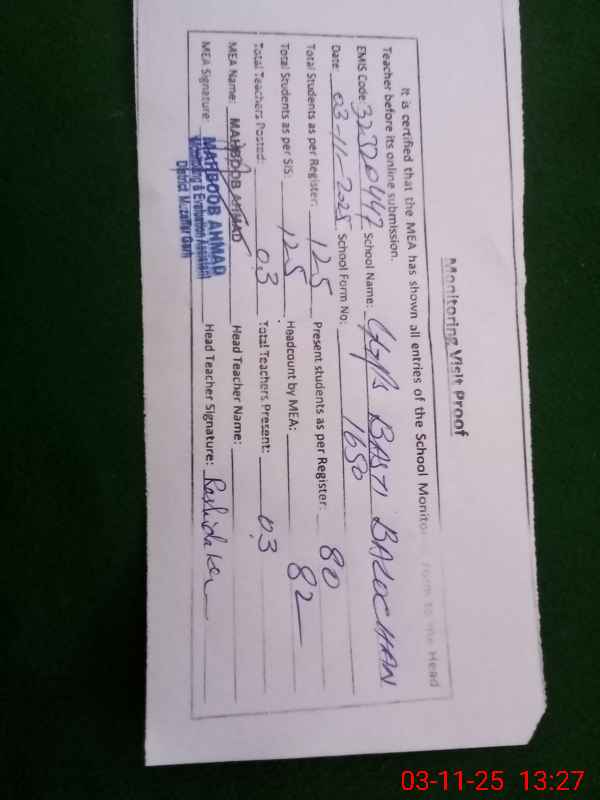 Monitoring Visit Proof
It is certified that the MEA has shown all entries of the School Monitor Form to the Head
Teacher before its online submission.
EMIS Code 32320447 School Name: GGPS BASTI BALOCHAN
Date: 03-11-2025 School Form No: 1650
Total Students as per Register: 125 Present students as per Register: 80
Total Students as per SIS: 125 Headcount by MEA: 82
Total Teachers Posted: 03 Total Teachers Present: 03
MEA Name: MAHBOOB AHMAD Head Teacher Name:
MEA Signature: Head Teacher Signature:
MAHBOOB AHMAD
Monitoring & Evaluation Assistant
District Muzaffar Garh
03-11-25 13:27